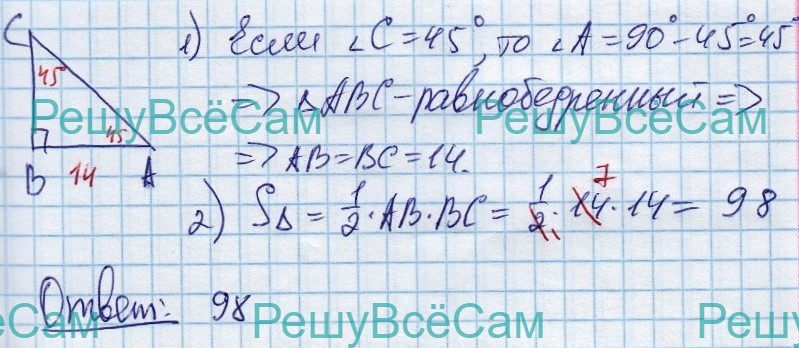 C
45°
45
B 14 A
1) Если ∠C=45°, то ∠A=90°-45°=45°
=> ΔABC-равнобедренный =>
РешуВсёСам РешуВсёСам
=> AB=BC=14.
2) SΔ = 1/2 · AB · BC = 1/2 · 14 · 14 = 98
7
1
Ответ: 98
еСам РешуВсёСам Решу